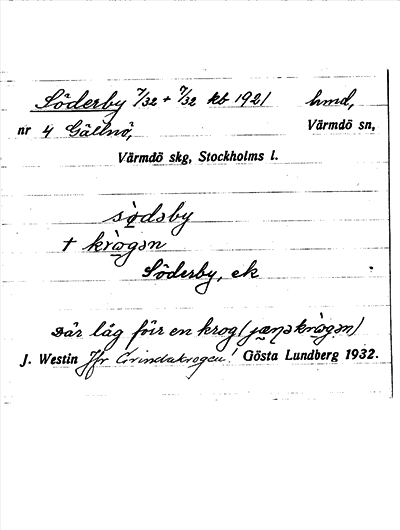 Söderby 7/32 + 9/32 kb 1921 hmd,
nr 4 Gällnö, Värmdö sn,
Värmdö skg, Stockholms l.
sø̀dəby
† krò̤gən
Söderby, ek
Där låg förr en krog
J. Westin Jfr Grindakrogen! Gösta Lundberg 1932.